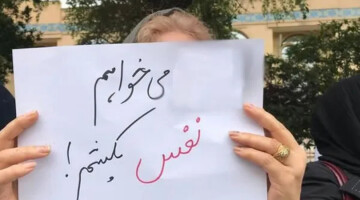 می‌خواهم
نفس بکشم!